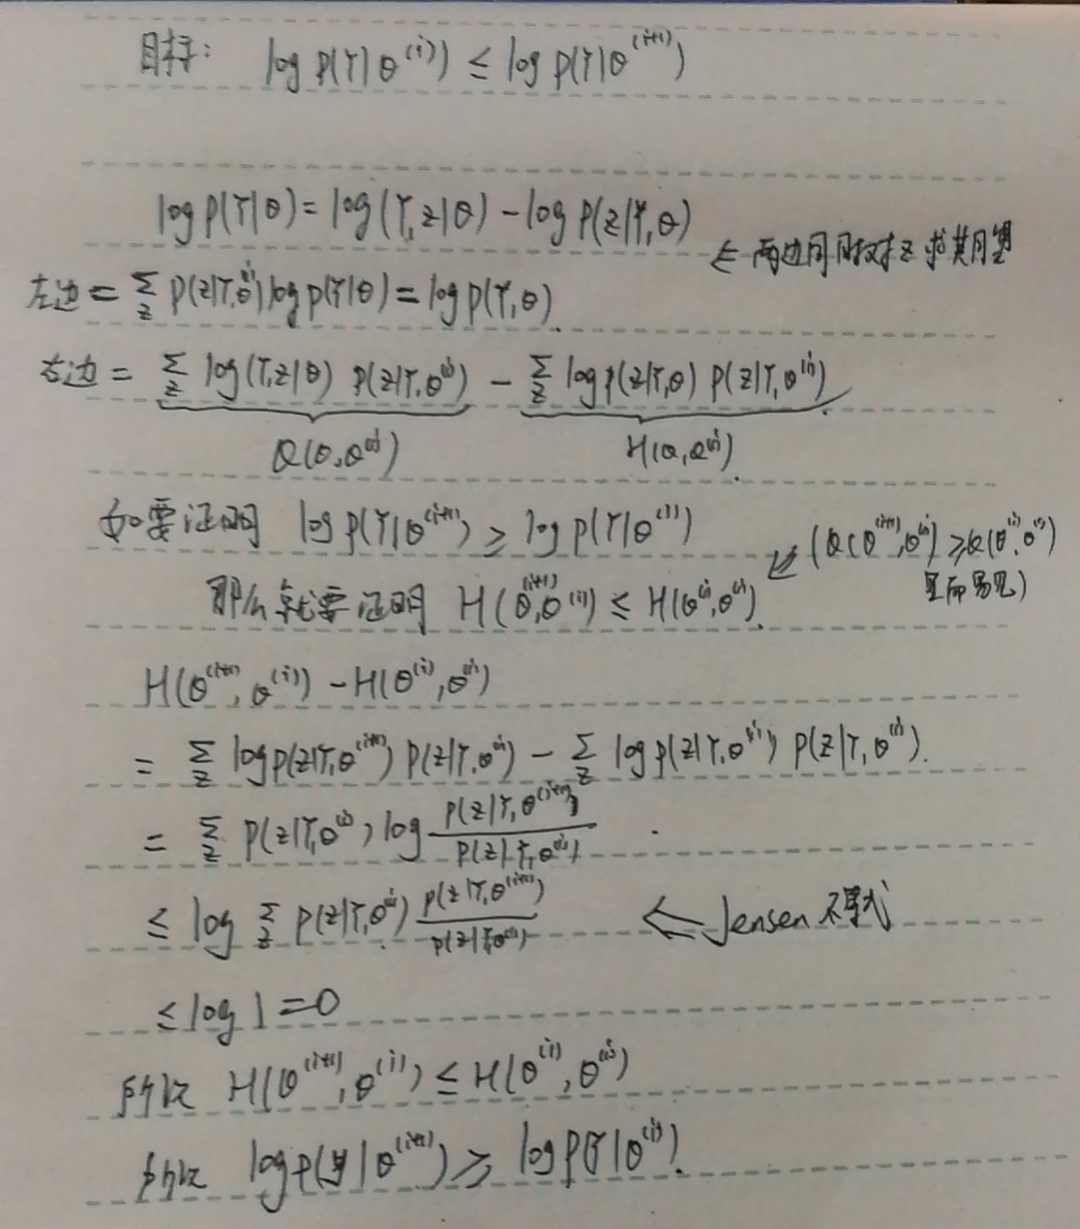 目标: log P(Y|θ^(i)) ≤ log P(Y|θ^(i+1))
log P(Y|θ) = log(Y,z|θ) - log P(z|Y,θ)
← 两边同时对z求其期望
左边 = Σ_z P(z|Y,θ^(i)) log P(Y|θ) = log P(Y,θ).
右边 = Σ_z log(Y,z|θ) P(z|Y,θ^(i)) - Σ_z log P(z|Y,θ) P(z|Y,θ^(i)).
Q(θ,θ^(i)) H(θ,θ^(i)).
如要证明 log P(Y|θ^(i+1)) ≥ log P(Y|θ^(i))
⇐ (Q(θ^(i+1),θ^(i)) ≥ Q(θ^(i),θ^(i))
显而易见)
那么就要证明 H(θ^(i+1),θ^(i)) ≤ H(θ^(i),θ^(i)).
H(θ^(i+1),θ^(i)) - H(θ^(i),θ^(i))
= Σ_z log P(z|Y,θ^(i+1)) P(z|Y,θ^(i)) - Σ_z log P(z|Y,θ^(i)) P(z|Y,θ^(i)).
= Σ_z P(z|Y,θ^(i)) log P(z|Y,θ^(i+1)) / P(z|Y,θ^(i)) .
≤ log Σ_z P(z|Y,θ^(i)) P(z|Y,θ^(i+1)) / P(z|Y,θ^(i)) ⇐ Jensen 不等式
≤ log 1 = 0
所以 H(θ^(i+1),θ^(i)) ≤ H(θ^(i),θ^(i))
所以 log P(y|θ^(i+1)) ≥ log P(Y|θ^(i)).